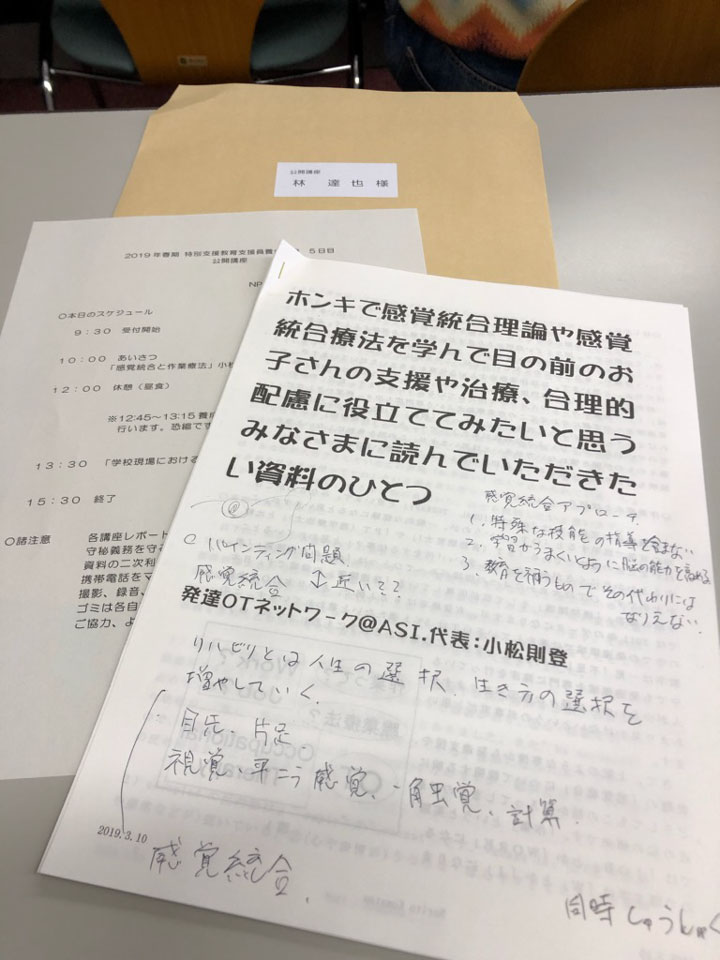 公開講座
林 達也 様
2019年春期 特別支援教育支援員養 5日目
公開講座
NP
〇本日のスケジュール
9：30 受付開始
10：00 あいさつ
「感覚統合と作業療法」小松
12：00 休憩（昼食）
※12:45～13:15 養成
行います。恐縮です
13：30 「学校現場における
15：30 終了
〇諸注意 各講座レポート
守秘義務を守
資料の二次利
携帯電話をマ
撮影、録音、
ゴミは各自
ご協力、よ
ホンキで感覚統合理論や感覚
統合療法を学んで目の前のお
子さんの支援や治療、合理的
配慮に役立ててみたいと思う
みなさまに読んでいただきた
い資料のひとつ
感覚統合アプローチ
1. 特殊な技能の指導を含まない
2. 学習がうまくいくように脳の能力を高める
3. 教育を補うもので その代わりには
なりえない.
問題
感覚統合 ↕近い??
発達OTネットワーク@ASI.代表：小松則登
リハビリとは人生の選択、生き方の選択を
増やしていく.
片足
視覚、平こう感覚、触覚、計算.
2019.3.10
感覚統合.
同時しゅうしゅく